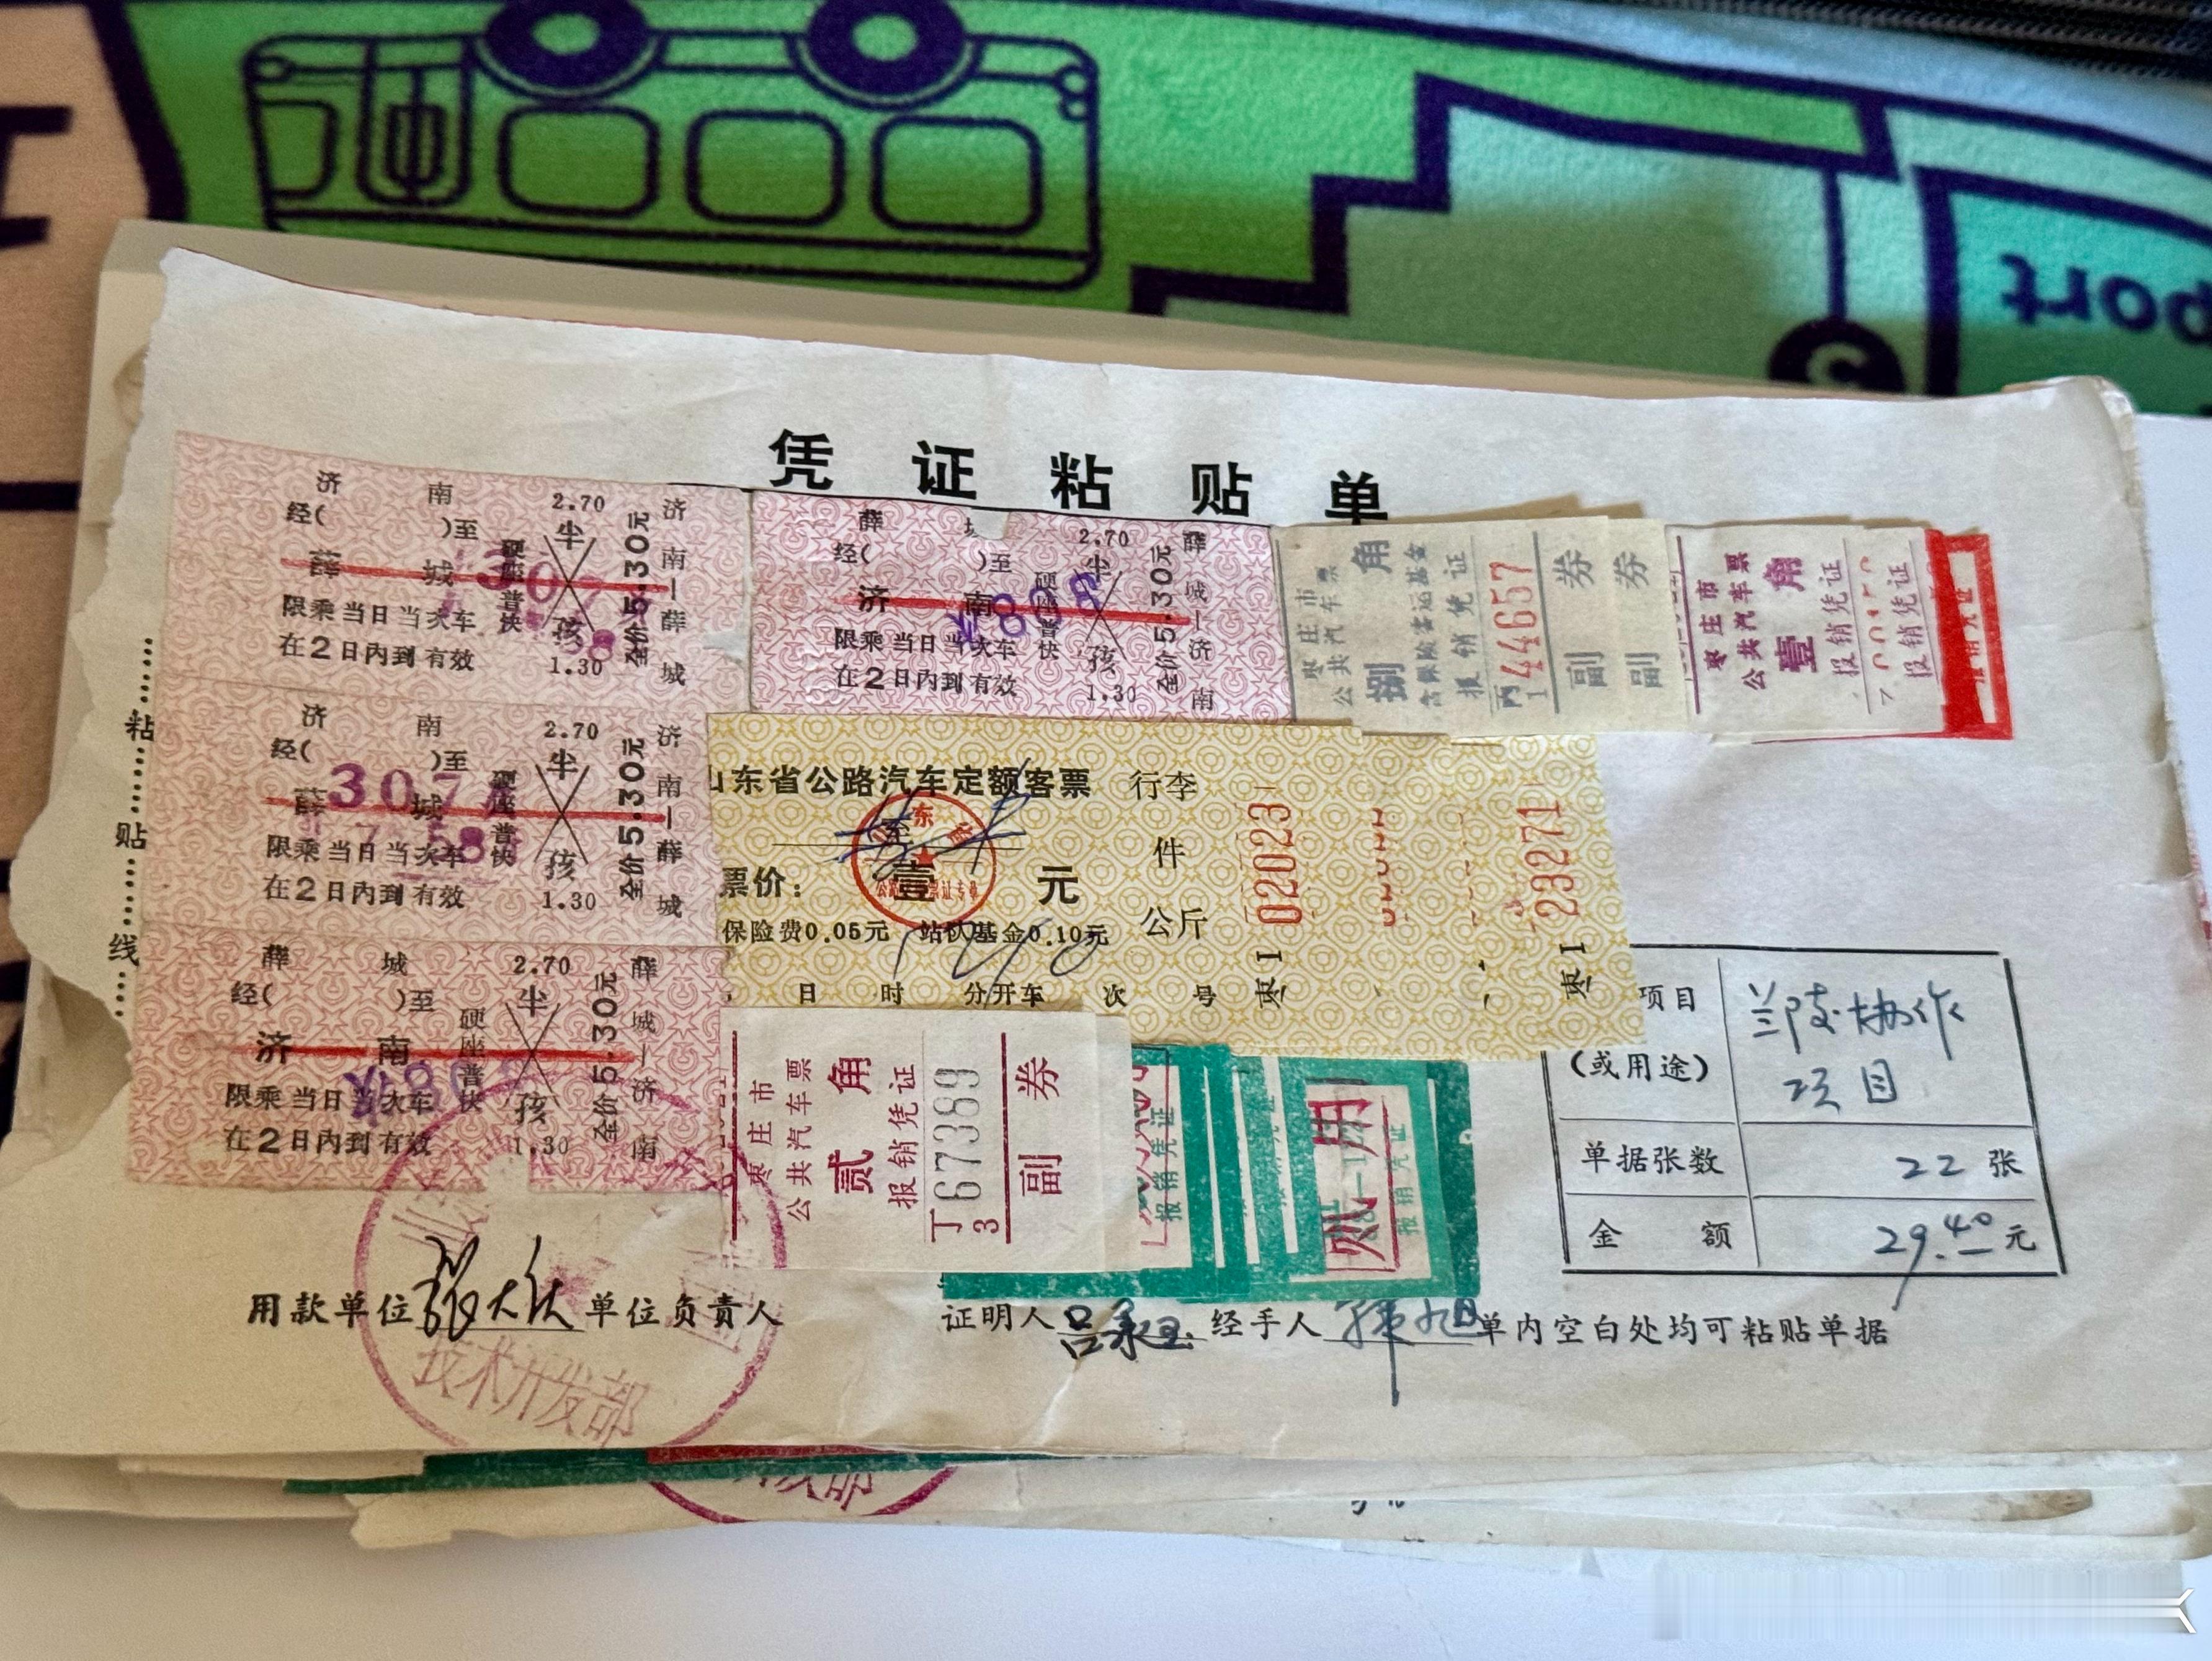 凭证粘贴单
济南
经( )至
薛城
限乘当日当次车
在2日内到有效
硬座普快
2.70
半
孩
1.30
全价5.30元
济南—薛城
薛城
经( )至
济南
限乘当日当次车
在2日内到有效
硬座普快
2.70
半
孩
1.30
全价5.30元
薛城—济南
枣庄市
公共汽车票
捌角
含保险客运基金
报销凭证
44657
副券
副券
枣庄市
公共汽车票
壹角
报销凭证
报销凭证
济南
经( )至
薛城
3077
限乘当日当次车
在2日内到有效
硬座普快
2.70
半
孩
1.30
全价5.30元
济南—薛城
山东省公路汽车定额客票
票价：壹元
保险费0.05元 站队基金0.10元
日 时 分开车 次 号
行李
件
公斤
枣I 02023
枣I 23271
薛城
经( )至
济南
限乘当日当次车
在2日内到有效
硬座普快
2.70
半
孩
1.30
全价5.30元
薛城—济南
枣庄市
公共汽车票
贰角
报销凭证
丁67389
3
副券
报销凭证
报销凭证
粘贴线
项目
(或用途)
兰陵协作
项目
单据张数 22 张
金额 29.40元
用款单位 单位负责人
证明人 经手人 单内空白处均可粘贴单据
技术开发部
port